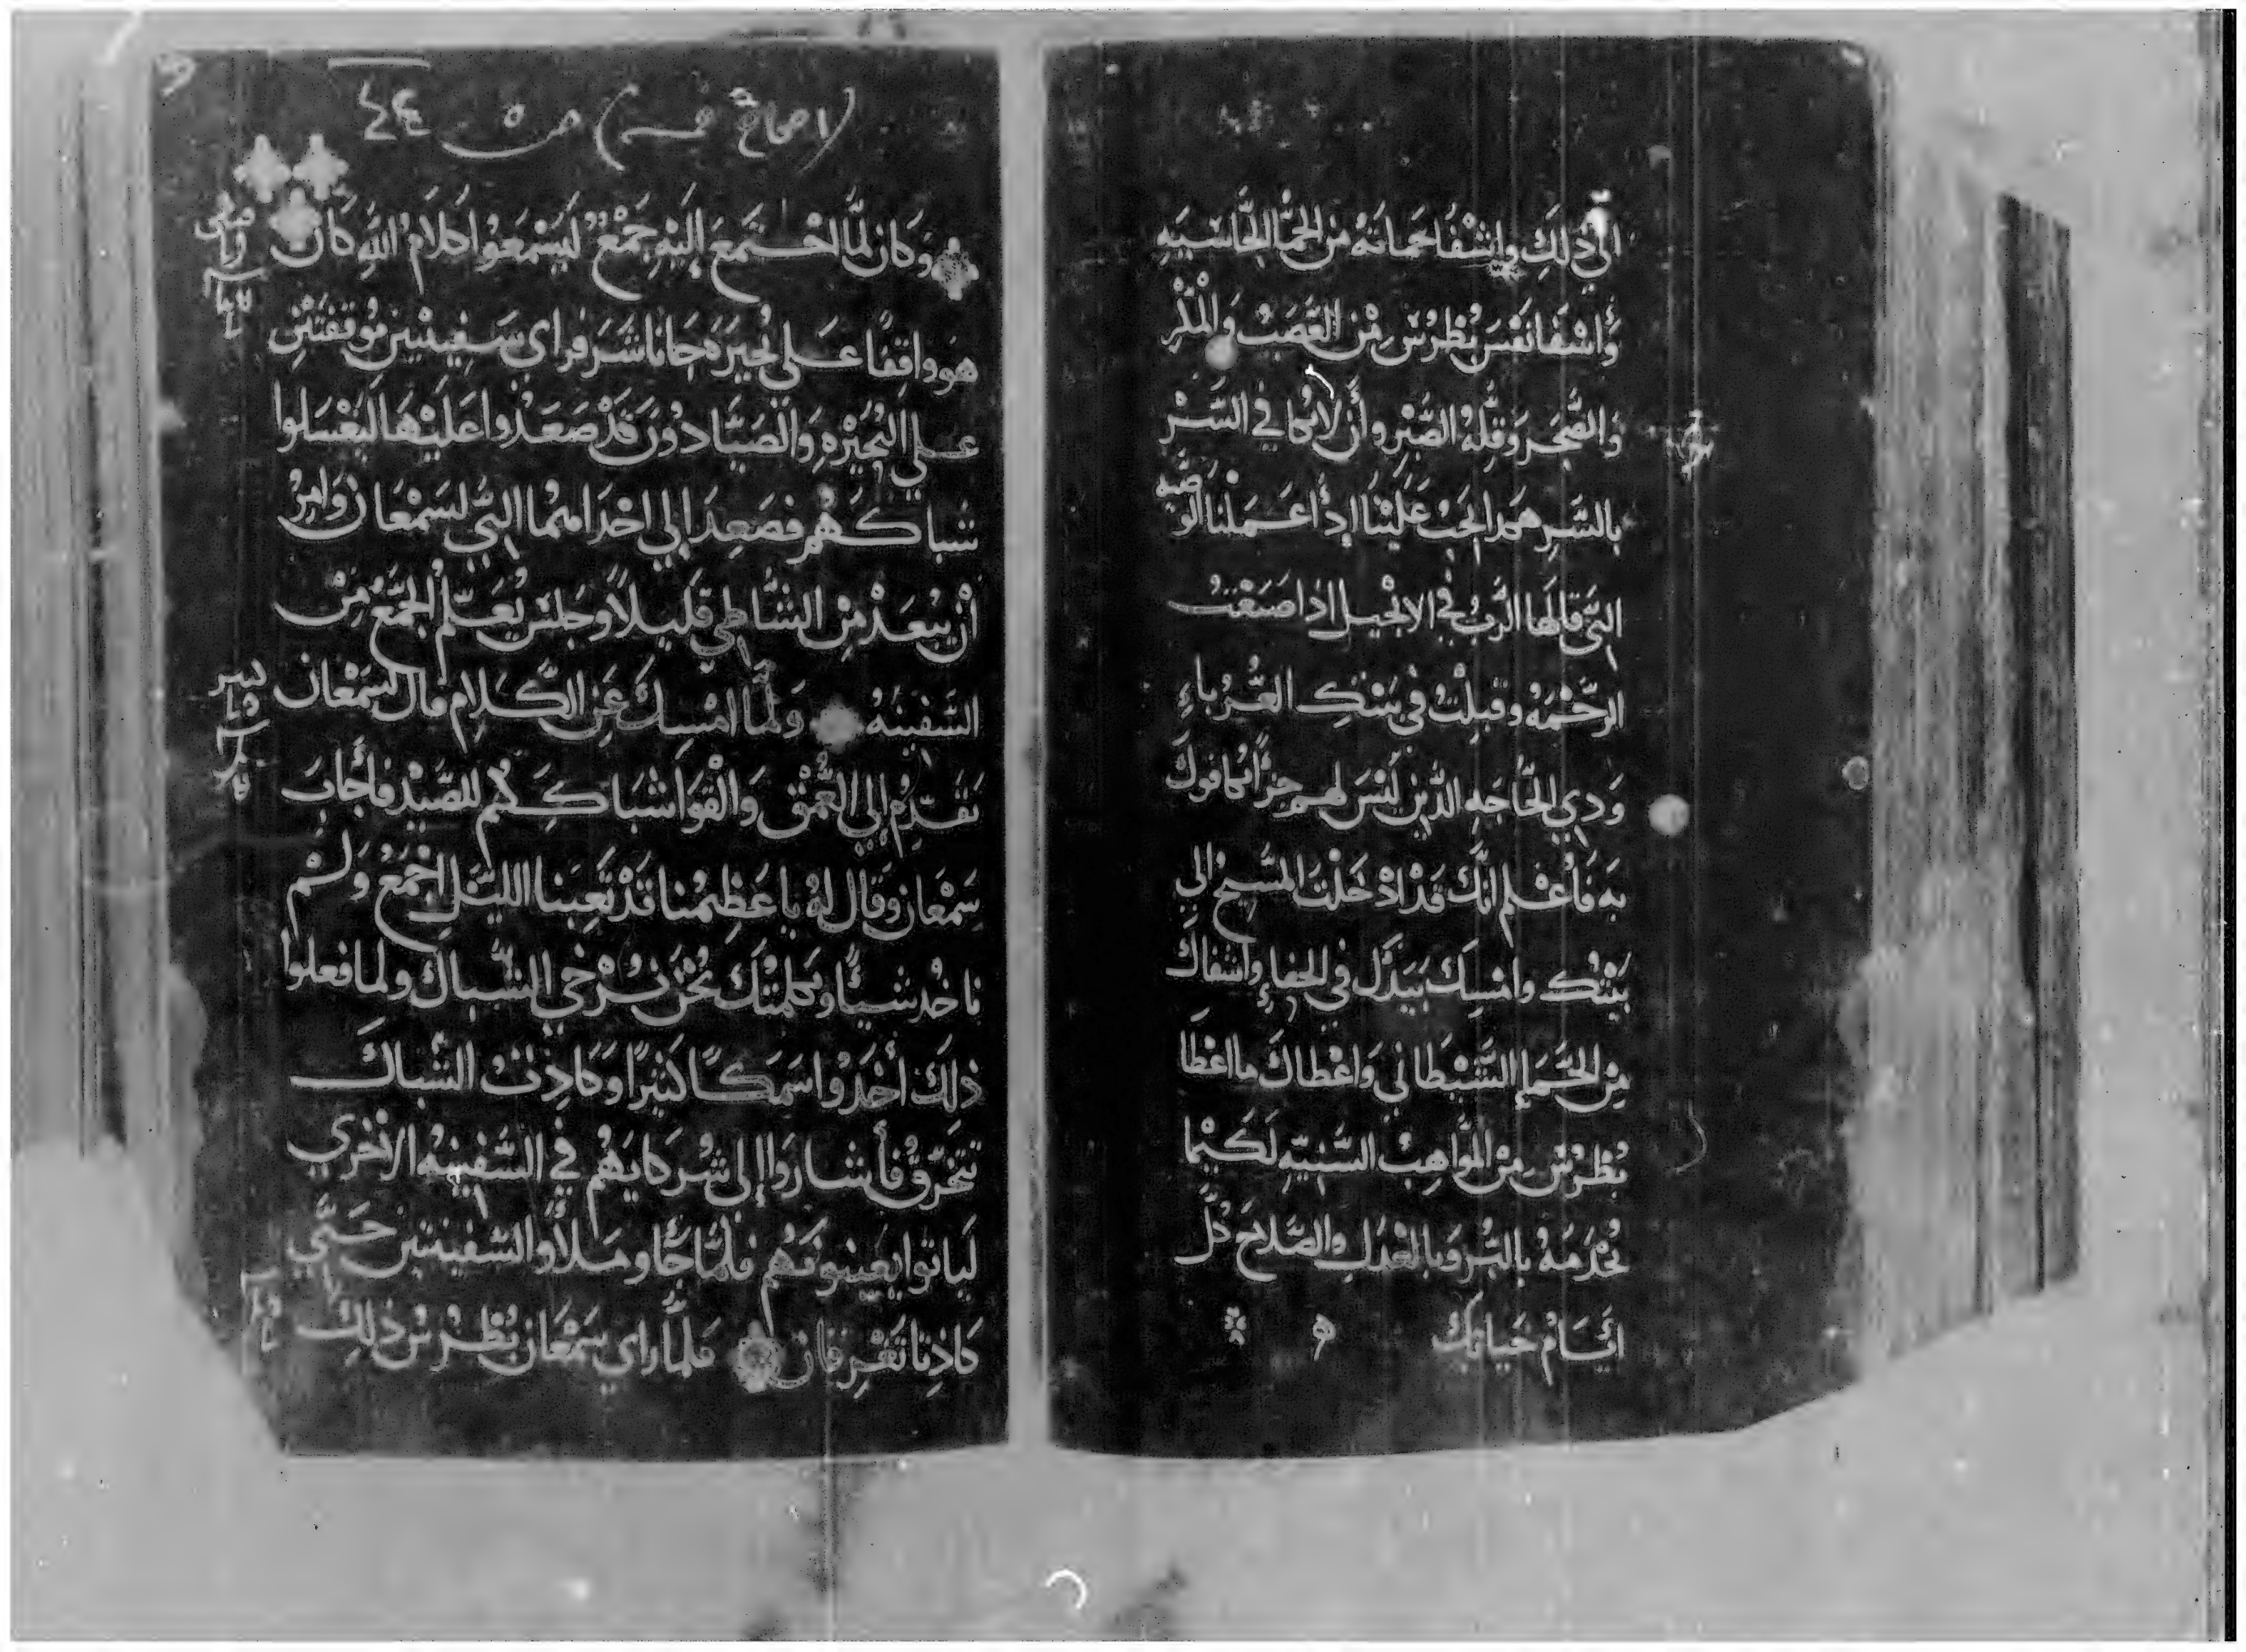 الي ذلك واشفا حماته من الحما الحاسيه
واشفا نفس بطرس من الغضب والمكر
والضجر وقلة الصبر وأن لانكافي الشر
بالشر هكذا يجب علينا اذا عملنا الوصيه
التي قالها الرب في الانجيل اذا صنعت
الرحمه وقبلت في بيتك الغرباء
ودي الحاجه الذين ليس لهم جزا يكافوك
به فاعلم انك قد ادخلت المسيح الى
بيتك وامسك بيدك في الخفاء واشفاك
من الحما الشيطاني واعطاك ما اعطا
بطرس من المواهب السنيه لكيما
تخدمه بالبر وبالعدل والصلاح كل
ايام حياتك
اصحاح خمسه من ٤٤
وكان لما اجتمع إليه جمع ليسمعوا كلام الله كان
هو واقفا على بحيرة جاناشر فراى سفينتين موقفتين
على البحيره والصيادون قد صعدوا عليها ليغسلوا
شباكهم فصعد إلى احدا منهما التي لسمعان وامر
أن يبعد من الشاطي قليلاً وجلس يعلم الجمع من
السفينه ولما امسك عن الكلام قال لسمعان
تقدم إلى العمق والقوا شباككم للصيد فأجاب
سمعان وقال له يا عظيمنا قد تعبنا الليل اجمع ولم
ناخد شيئًا وبكلمتك نحن نرخي الشباك ولما فعلوا
ذلك أخدوا سمكًا كثيرًا وكادت الشباك
تتخرق فأشاروا إلى شركايهم في السفينه الاخرى
لياتوا يعينونهم فلما جاو وملأوا السفينتين حتى
كادتا تغرقان فلما راي سمعان بطرس ذلك